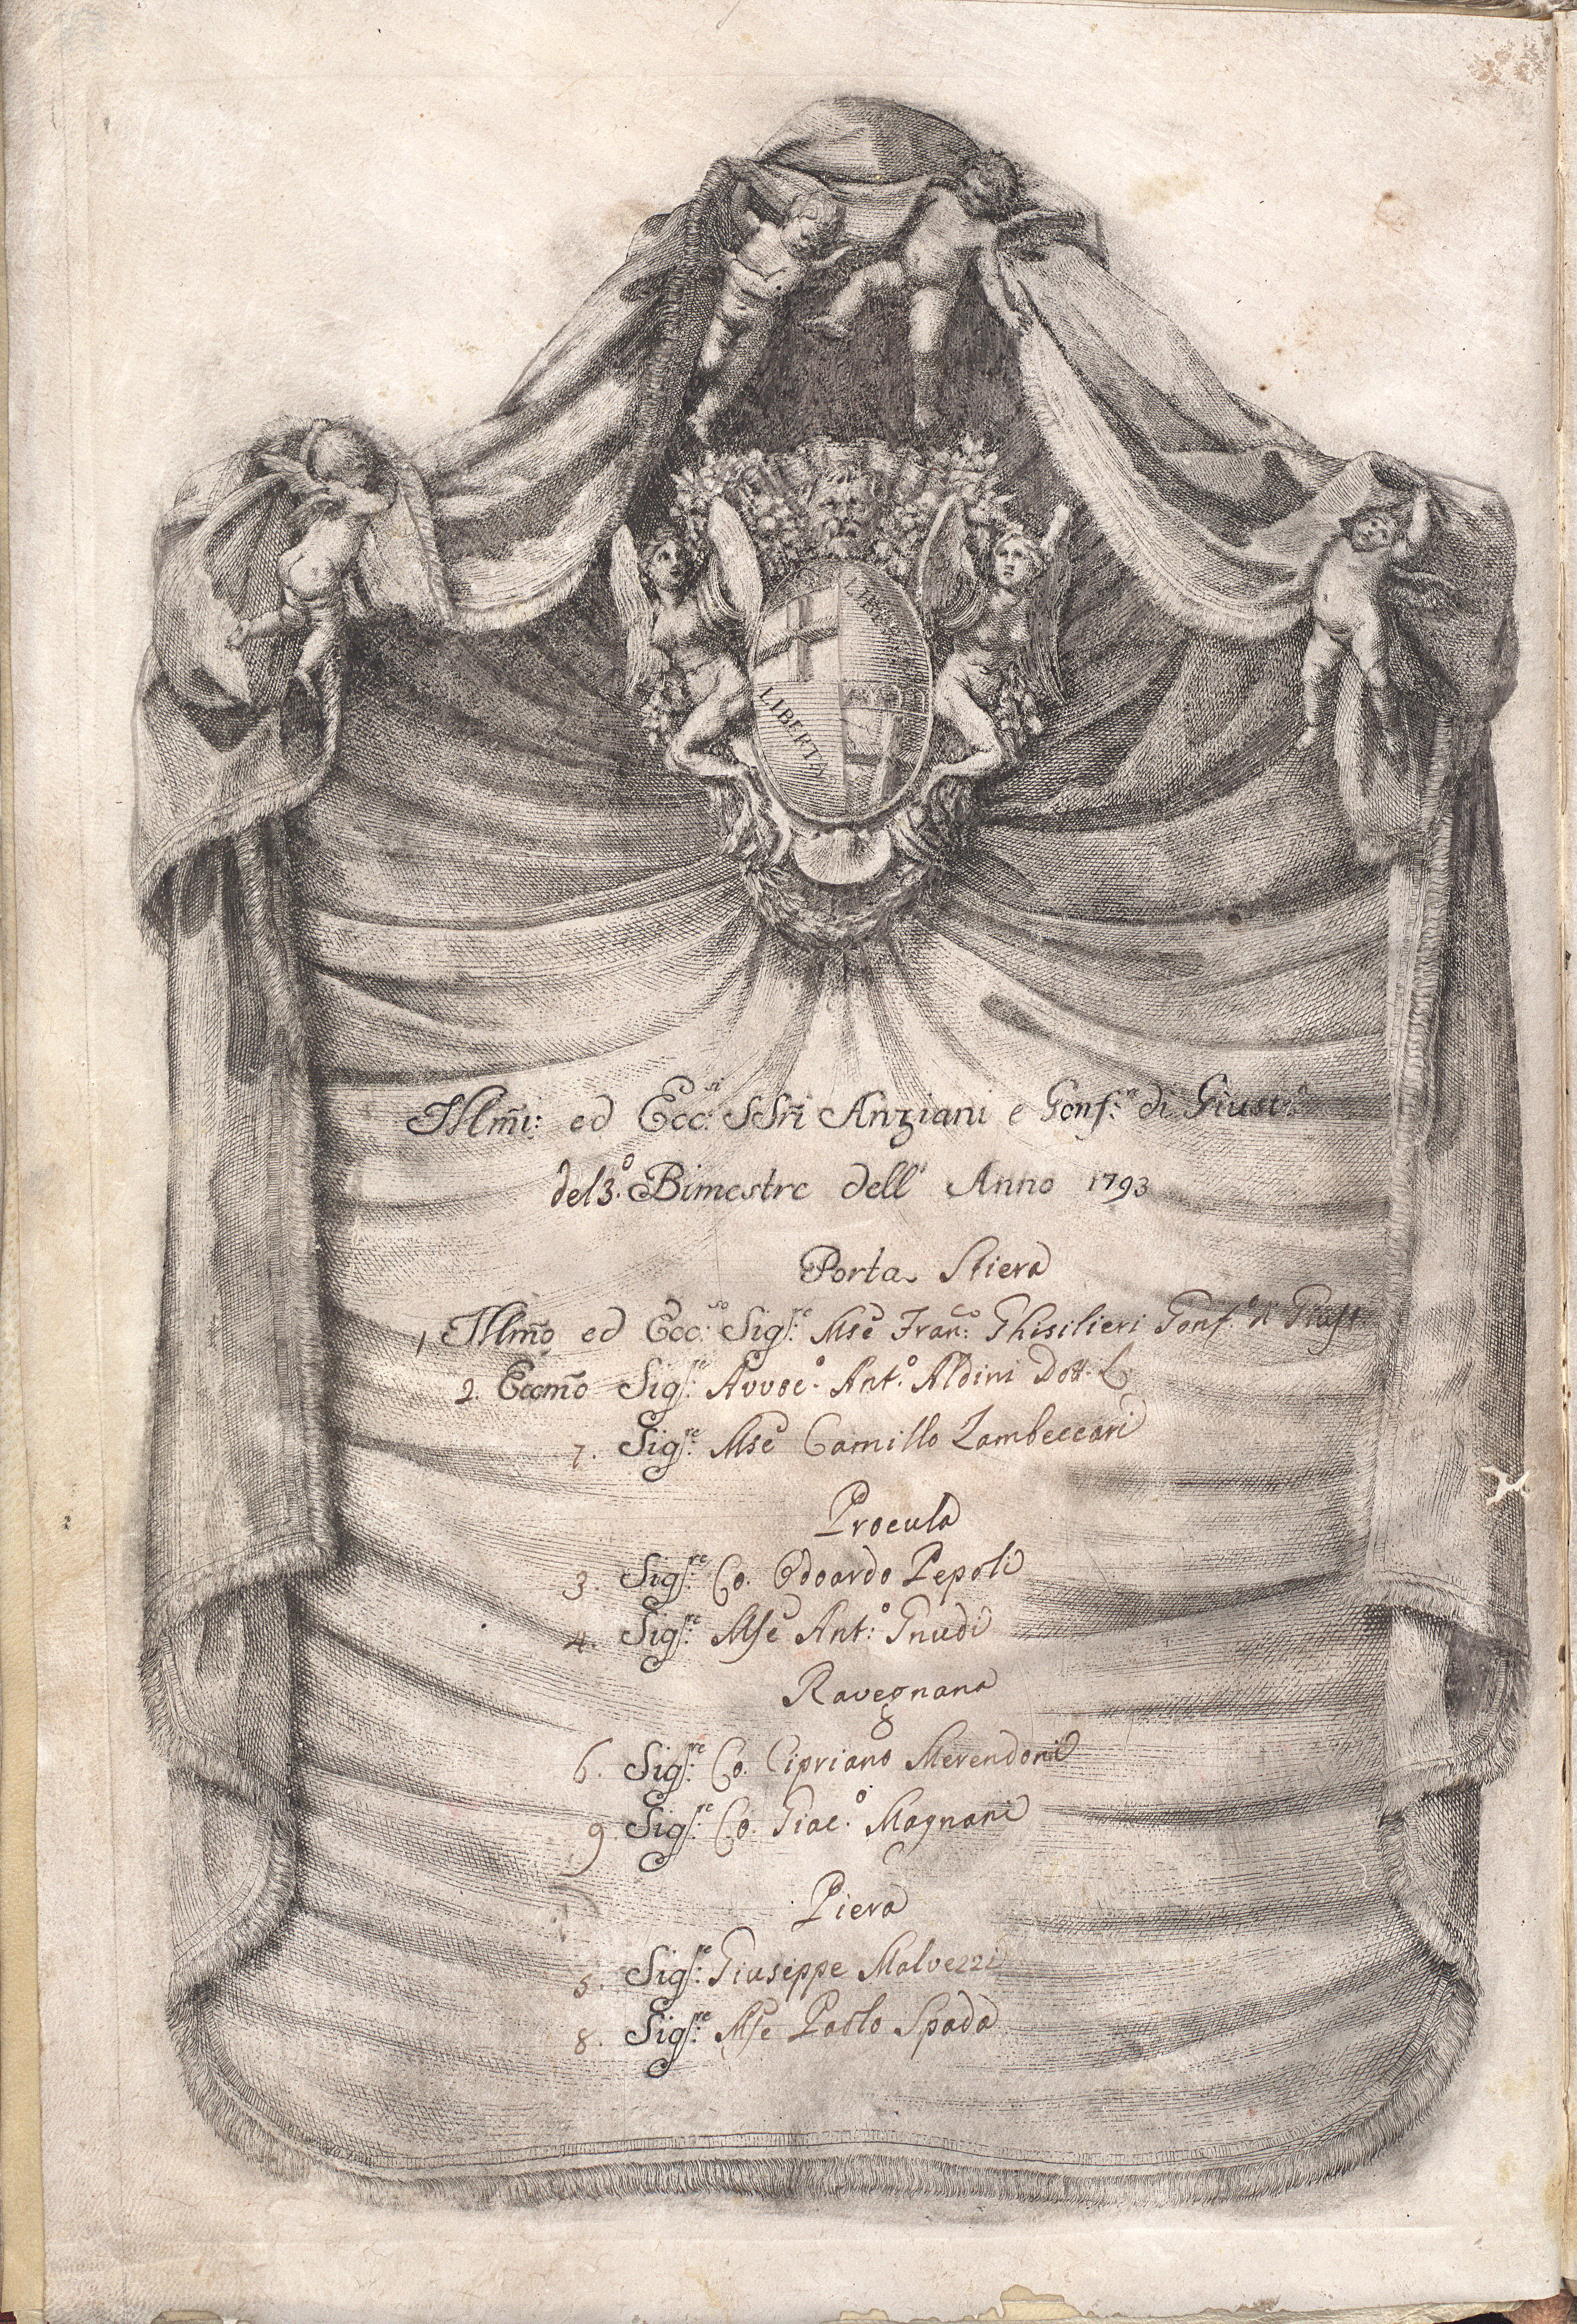 LIBERTAS
LIBERTAS
Illm̃i: ed Ecc:si SSri Anziani e Gonf:re di Giust:a
del 3.o Bimestre dell' Anno 1793
Porta Stiera
1. Illm̃o ed Ecc:mo Sig:re Mse Fran:co Ghisilieri Gonf.e di Giust.
2. Eccm̃o Sig:re Avvoc.o Ant.o Aldini Dott. L.
7. Sig:re Mse Camillo Zambeccari
Procula
3. Sig:re Co. Odoardo Pepoli
4. Sig:re Mse Ant:o Gnudi
Ravegnana
6. Sig:re Co. Cipriano Merendoni
9. Sig:re Co. Giac.o Magnani
Piera
5. Sig:re Giuseppe Malvezzi
8. Sig:re Mse Paolo Spada